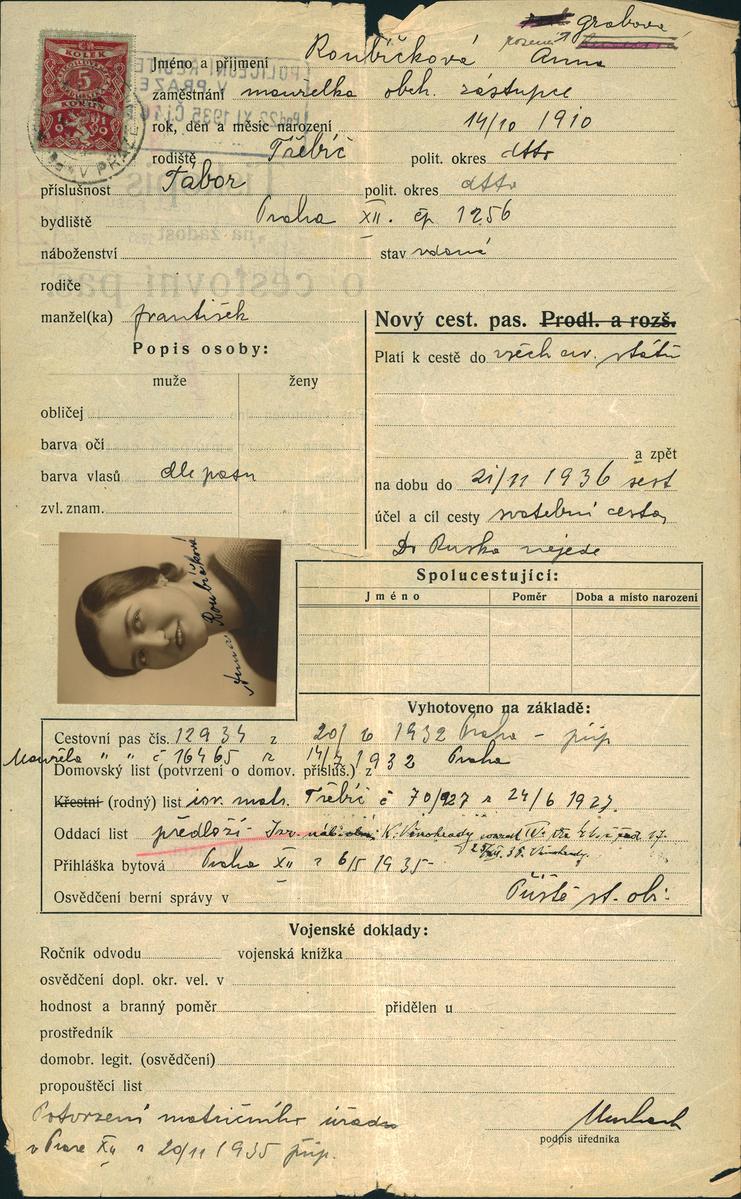 grabova
KOLEK
5
KORUN
V PRAZE
POLICEJNÍ ŘED
V PRAZE
22 XI 1935
Jméno a příjmení Roubíčková Anna
rozená
zaměstnání manželka obch. zástupce
rok, den a měsíc narození 14/10 1910
rodiště Třebíč polit. okres dtto
příslušnost Tábor polit. okres dtto
bydliště Praha XII. čp 1256
na žádost
náboženství stav vdaná
o cestovní pas.
rodiče
manžel(ka) František
Nový cest. pas. Prodl. a rozš.
Popis osoby:
Platí k cestě do všech ev. států
muže ženy
obličej
barva očí
a zpět
barva vlasů dle pasu
na dobu do 21/11 1936 šest
zvl. znam.
účel a cíl cesty svatební cesta
Do Ruska nejede
Anna Roubíčková
Spolucestující:
Jméno Poměr Doba a místo narození
Vyhotoveno na základě:
Cestovní pas čís. 12934 z 20/6 1932 Praha - příp
Manžela " " č 16465 z 14/7 1932 Praha
Domovský list (potvrzení o domov. přísluš.) z
Křestní (rodný) list isr. matr. Třebíč č 70/927 z 24/6 1927.
Oddací list předloží - Isr. K. Vinohrady
Vinohrady.
Přihláška bytová Praha XII z 6/5 1935-
Osvědčení berní správy v Příště st. ob.
Vojenské doklady:
Ročník odvodu vojenská knížka
osvědčení dopl. okr. vel. v
hodnost a branný poměr přidělen u
prostředník
domobr. legit. (osvědčení)
propouštěcí list
Potvrzení matričního úřadu
v Praze XII z 20/11 1935 příp.
podpis úředníka